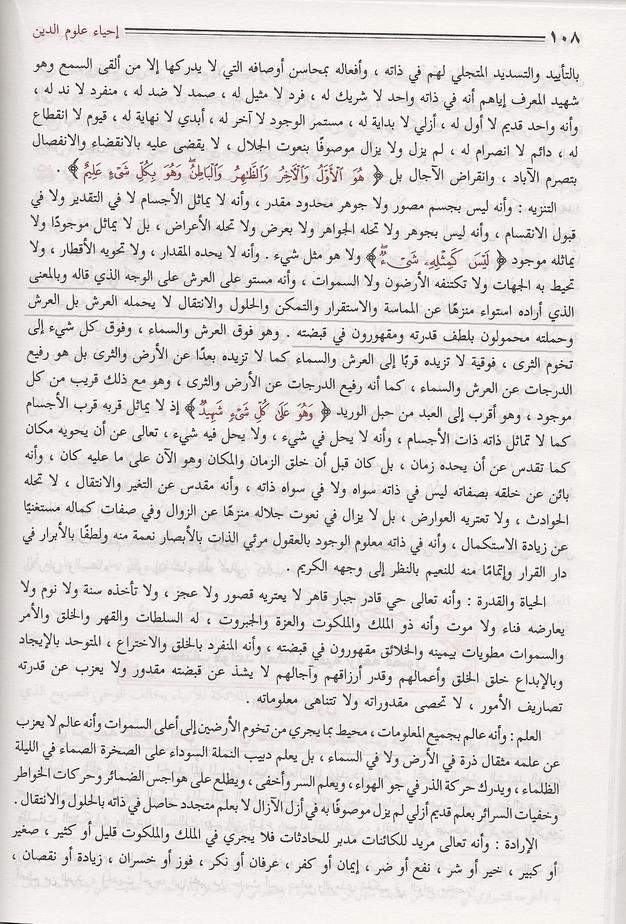 ١٠٨ إحياء علوم الدين
بالتأييد والتسديد المتجلي لهم في ذاته ، وأفعاله بمحاسن أوصافه التي لا يدركها إلا من ألقى السمع وهو
شهيد المعرف إياهم أنه في ذاته واحد لا شريك له ، فرد لا مثيل له ، صمد لا ضد له ، منفرد لا ند له ،
وأنه واحد قديم لا أول له ، أزلي لا بداية له ، مستمر الوجود لا آخر له ، أبدي لا نهاية له ، قيوم لا انقطاع
له ، دائم لا انصرام له ، لم يزل ولا يزال موصوفًا بنعوت الجلال ، لا يقضى عليه بالانقضاء والانفصال
بتصرم الآباد ، وانقراض الآجال بل ﴿ هُوَ ٱلْأَوَّلُ وَٱلْآخِرُ وَٱلظَّٰهِرُ وَٱلْبَاطِنُ ۖ وَهُوَ بِكُلِّ شَىْءٍ عَلِيمٌ ﴾ .
التنزيه : وأنه ليس بجسم مصور ولا جوهر محدود مقدر ، وأنه لا يماثل الأجسام لا في التقدير ولا في
قبول الانقسام ، وأنه ليس بجوهر ولا تحله الجواهر ولا بعرض ولا تحله الأعراض ، بل لا يماثل موجودًا ولا
يماثله موجود ﴿ لَيْسَ كَمِثْلِهِۦ شَىْءٌ ۖ ﴾ ولا هو مثل شيء . وأنه لا يحده المقدار ، ولا تحويه الأقطار ، ولا
تحيط به الجهات ولا تكتنفه الأرضون ولا السموات ، وأنه مستو على العرش على الوجه الذي قاله وبالمعنى
الذي أراده استواء منزهًا عن المماسة والاستقرار والتمكن والحلول والانتقال لا يحمله العرش بل العرش
وحملته محمولون بلطف قدرته ومقهورون في قبضته . وهو فوق العرش والسماء ، وفوق كل شيء إلى
تخوم الثرى ، فوقية لا تزيده قربًا إلى العرش والسماء كما لا تزيده بعدًا عن الأرض والثرى بل هو رفيع
الدرجات عن العرش والسماء ، كما أنه رفيع الدرجات عن الأرض والثرى ، وهو مع ذلك قريب من كل
موجود ، وهو أقرب إلى العبد من حبل الوريد ﴿ وَهُوَ عَلَىٰ كُلِّ شَىْءٍ شَهِيدٌ ﴾ إذ لا يماثل قربه قرب الأجسام
كما لا تماثل ذاته ذات الأجسام ، وأنه لا يحل في شيء ، ولا يحل فيه شيء ، تعالى عن أن يحويه مكان
كما تقدس عن أن يحده زمان ، بل كان قبل أن خلق الزمان والمكان وهو الآن على ما عليه كان ، وأنه
بائن عن خلقه بصفاته ليس في ذاته سواه ولا في سواه ذاته ، وأنه مقدس عن التغير والانتقال ، لا تحله
الحوادث ، ولا تعتريه العوارض ، بل لا يزال في نعوت جلاله منزهًا عن الزوال وفي صفات كماله مستغنيًا
عن زيادة الاستكمال ، وأنه في ذاته معلوم الوجود بالعقول مرئي الذات بالأبصار نعمة منه ولطفًا بالأبرار في
دار القرار وإتمامًا منه للنعيم بالنظر إلى وجهه الكريم .
الحياة والقدرة : وأنه تعالى حي قادر جبار قاهر لا يعتريه قصور ولا عجز ، ولا تأخذه سنة ولا نوم ولا
يعارضه فناء ولا موت وأنه ذو الملك والملكوت والعزة والجبروت ، له السلطات والقهر والخلق والأمر
والسموات مطويات بيمينه والخلائق مقهورون في قبضته ، وأنه المنفرد بالخلق والاختراع ، المتوحد بالإيجاد
وبالإبداع خلق الخلق وأعمالهم وقدر أرزاقهم وآجالهم لا يشذ عن قبضته مقدور ولا يعزب عن قدرته
تصاريف الأمور ، لا تحصى مقدوراته ولا تتناهى معلوماته .
العلم : وأنه عالم بجميع المعلومات ، محيط بما يجري من تخوم الأرضين إلى أعلى السموات وأنه عالم لا يعزب
عن علمه مثقال ذرة في الأرض ولا في السماء ، بل يعلم دبيب النملة السوداء على الصخرة الصماء في الليلة
الظلماء ، ويدرك حركة الذر في جو الهواء ، ويعلم السر وأخفى ، ويطلع على هواجس الضمائر وحركات الخواطر
وخفيات السرائر بعلم قديم أزلي لم يزل موصوفًا به في أزل الآزال لا بعلم متجدد حاصل في ذاته بالحلول والانتقال .
الإرادة : وأنه تعالى مريد للكائنات مدبر للحادثات فلا يجري في الملك والملكوت قليل أو كثير ، صغير
أو كبير ، خير أو شر ، نفع أو ضر ، إيمان أو كفر ، عرفان أو نكر ، فوز أو خسران ، زيادة أو نقصان ،